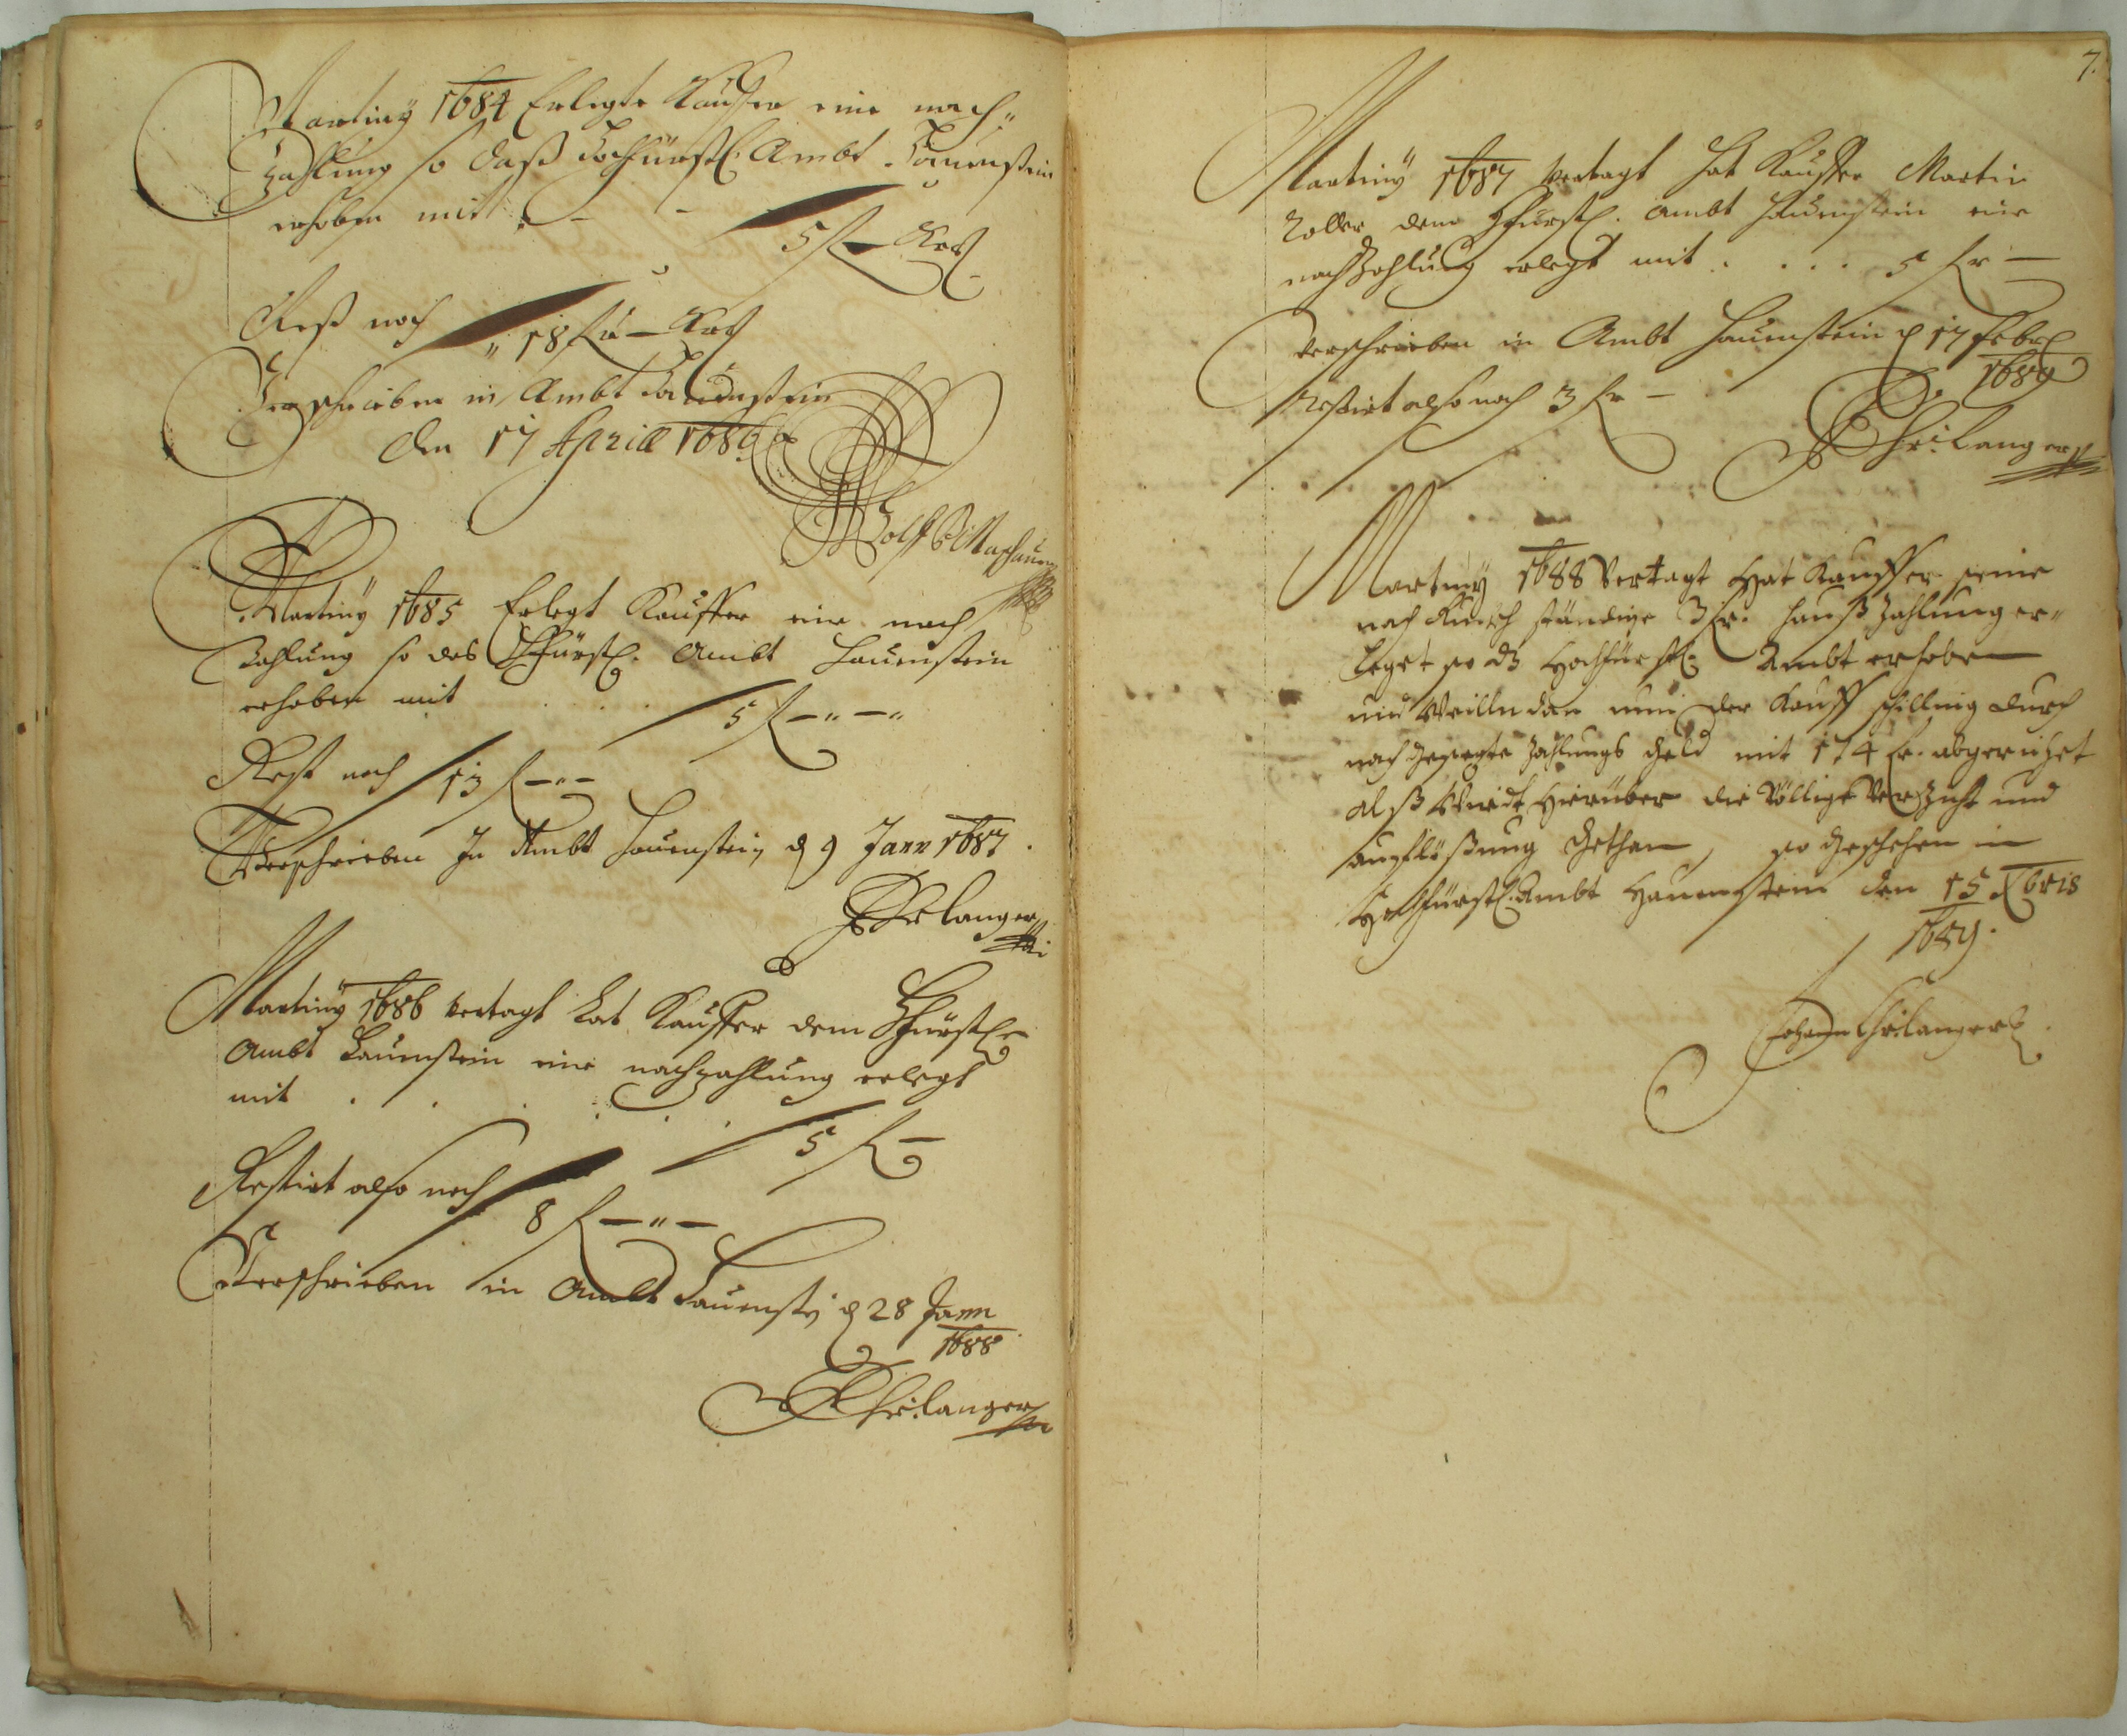 Martiny 1684 Erlegte Kauffer eine nach„
Zahlung so daß Hochfürstl. Ambt Hauenstein
erhoben mit 5 f — Kr
Rest noch „ 18 fr — Kr
Verschrieben in Ambt Hauenstein
den 17 Aprill 1686
Wolff
Martiny 1685 Erlegt Kauffer eine nach
Zahlung so das Hfürstl. Ambt Hauenstein
erhoben mit . . . 5 f — „ — „
Rest noch 13 f — „ —
Verschrieben In Ambt Hauenstein d 9 Jann 1687.
Chrilanger
Martiny 1686 vertagt hat Kauffer dem Hfürstl.
Ambt Hauenstein eine nachzahlung erlegt
mit . . . . . 5 f —
Restirt also noch 8 f — „ —
Verschrieben in Ambt Hauenst d 28 Jann
1688
Chrilanger
7.
Martiny 1687 vertagt hat Kauffer Martin
dem Hfürstl. Ambt Hauenstein eine
nachzahlung erlegt mit . . . . 5 fr —
Verschrieben in Ambt Hauenstein d 17 Febr
1689
Restirt also noch 3 fr —
Chrilanger
Martiny 1688 Vertagt Hat Kauffer seine
noch ständige 3 fr. hauß Zahlung er„
leget so dz Hochfürstl. Ambt erhoben
und Weilln dan nun der Kauff schilling durch
nach gesezte Zahlungs geld mit 174 fr. abgerichtet
Alß Wirdt Hierüber die Völlige Verzicht und
außlößung gethan, so geschehen in
Hochfürstl. Ambt Hauenstein den 15 Xbris
1689.
Johann Chrilanger